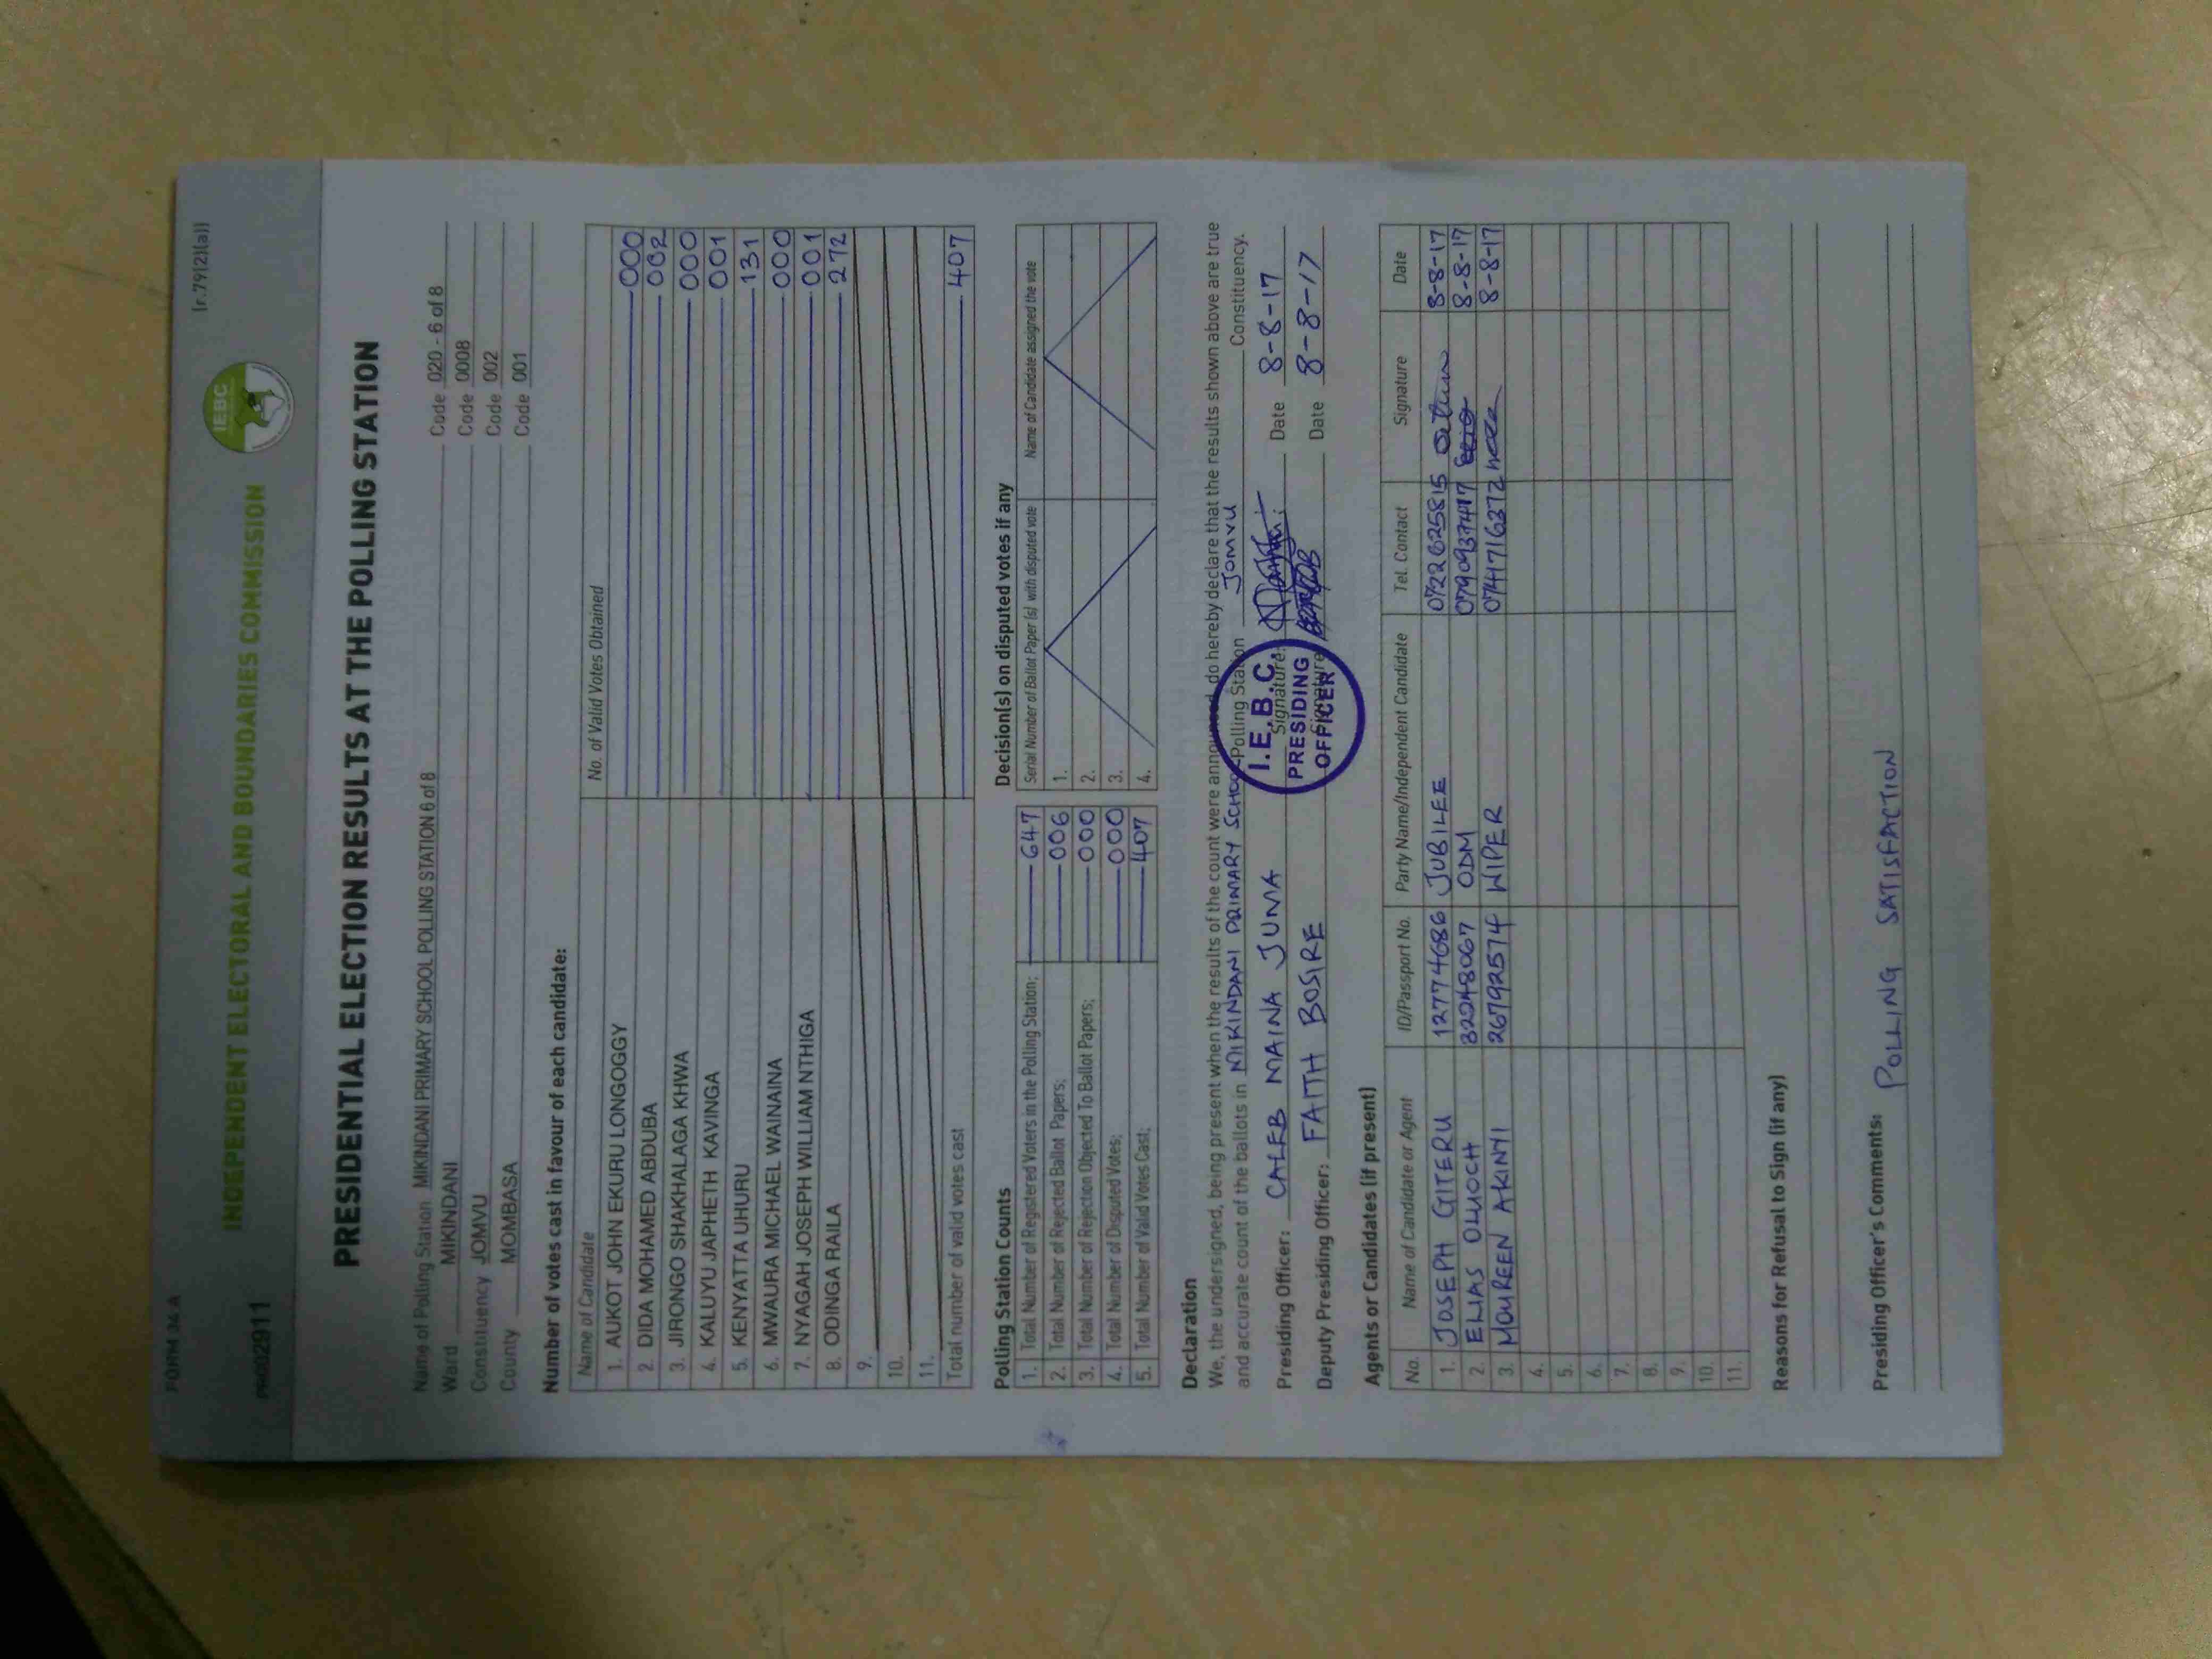 FORM 34 A
[r.79(2)(a)]
INDEPENDENT ELECTORAL AND BOUNDARIES COMMISSION
IEBC
PRESIDENTIAL ELECTION RESULTS AT THE POLLING STATION
Name of Polling Station MIKINDANI PRIMARY SCHOOL POLLING STATION 6 of 8 Code 020 - 6 of 8
Ward MIKINDANI Code 0008
Constituency JOMVU Code 002
County MOMBASA Code 001
Number of votes cast in favour of each candidate:
Name of Candidate No. of Valid Votes Obtained
1. AUKOT JOHN EKURU LONGOGGY 000
2. DIDA MOHAMED ABDUBA 002
3. JIRONGO SHAKHALAGA KHWA 000
4. KALUYU JAPHETH KAVINGA 001
5. KENYATTA UHURU 131
6. MWAURA MICHAEL WAINAINA 000
7. NYAGAH JOSEPH WILLIAM NTHIGA 001
8. ODINGA RAILA 272
9.
10.
11.
Total number of valid votes cast 407
Polling Station Counts
1. Total Number of Registered Voters in the Polling Station; 647
2. Total Number of Rejected Ballot Papers; 006
3. Total Number of Rejection Objected To Ballot Papers; 000
4. Total Number of Disputed Votes; 000
5. Total Number of Valid Votes Cast; 407
Decision(s) on disputed votes if any
Serial Number of Ballot Paper (s) with disputed vote Name of Candidate assigned the vote
1.
2.
3.
4.
Declaration
We, the undersigned, being present when the results of the count were announced, do hereby declare that the results shown above are true
and accurate count of the ballots in MIKINDANI PRIMARY SCHOOL Polling Station JOMVU Constituency.
Presiding Officer: CALEB MAINA JUMA Signature: Date 8-8-17
Deputy Presiding Officer: FAITH BOSIRE Signature Date 8-8-17
I.E.B.C.
PRESIDING
OFFICER
Agents or Candidates (if present)
No. Name of Candidate or Agent ID/Passport No. Party Name/Independent Candidate Tel. Contact Signature Date
1. JOSEPH GITERU 12774686 JUBILEE 0722625815 8-8-17
2. ELIAS OLUOCH 32048067 ODM 8-8-17
3. MOUREEN AKINYI 26792574 WIPER 0741716372 8-8-17
4.
5.
6.
7.
8.
9.
10.
11.
Reasons for Refusal to Sign (if any)
Presiding Officer's Comments: POLLING SATISFACTION